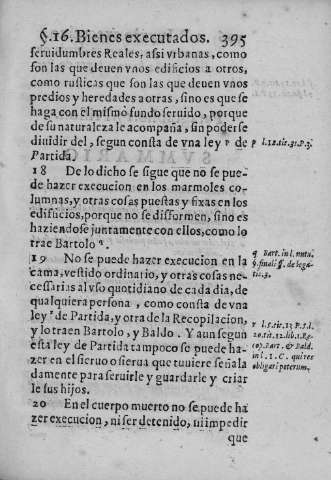 §.16. Bienes executados. 395
seruidumbres Reales, assi vrbanas, como
son las que deuen vnos edificios a otros,
como rusticas que son las que deuen vnos
predios y heredades a otras, sino es que se
haga con el mismo fundo seruido, porque
de su naturaleza le acompaña, sin poderse
diuidir del, segun consta de vna ley p de
Partida.
p l.12.tit.31.P.3.
18 De lo dicho se sigue que no se pue-
de hazer execucion en los marmoles co-
lumnas, y otras cosas puestas y fixas en los
edificios, porque no se disformen, sino es
haziendose juntamente con ellos, como lo
trae Bartolo q.
q Bart. in l. mutu.
§. finali ff. de lega-
tis.3.
19 No se puede hazer execucion en la
cama, vestido ordinario, y otras cosas ne-
cessarias al vso quotidiano de cada dia, de
qualquiera persona, como consta de vna
ley r de Partida, y otra de Recopilacion,
y lo traen Bartolo y Baldo. Y aun segun
esta ley de Partida tampoco se puede ha-
zer en el sieruo o sierua que tuuiere señala
damente para seruirle y guardarle y criar
le sus hijos.
r l.5.tit.13 P.5.l.
20.tit.12.lib.1.Re-
cop. Bart. & Bald.
in l. 1. C. qui res
obligari poterum.
20 En el cuerpo muerto no se puede ha
zer execucion, ni ser detenido, ni impedir
que